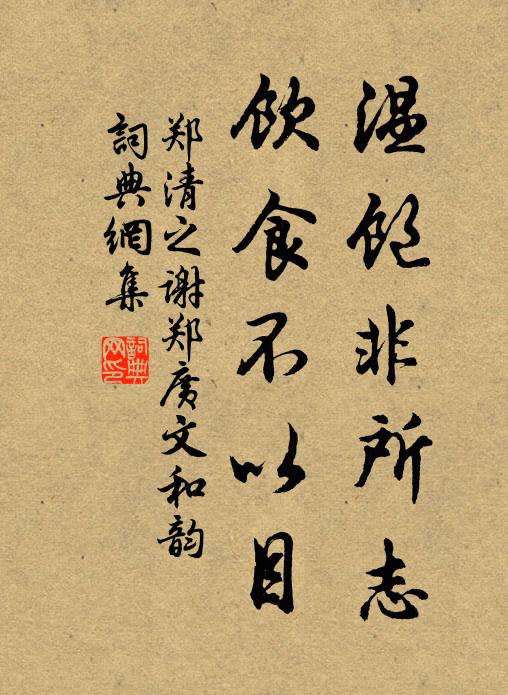 温饱非所志
饮食不以目
郑清之谢郑广文和韵
詞典網集
詞典
网印